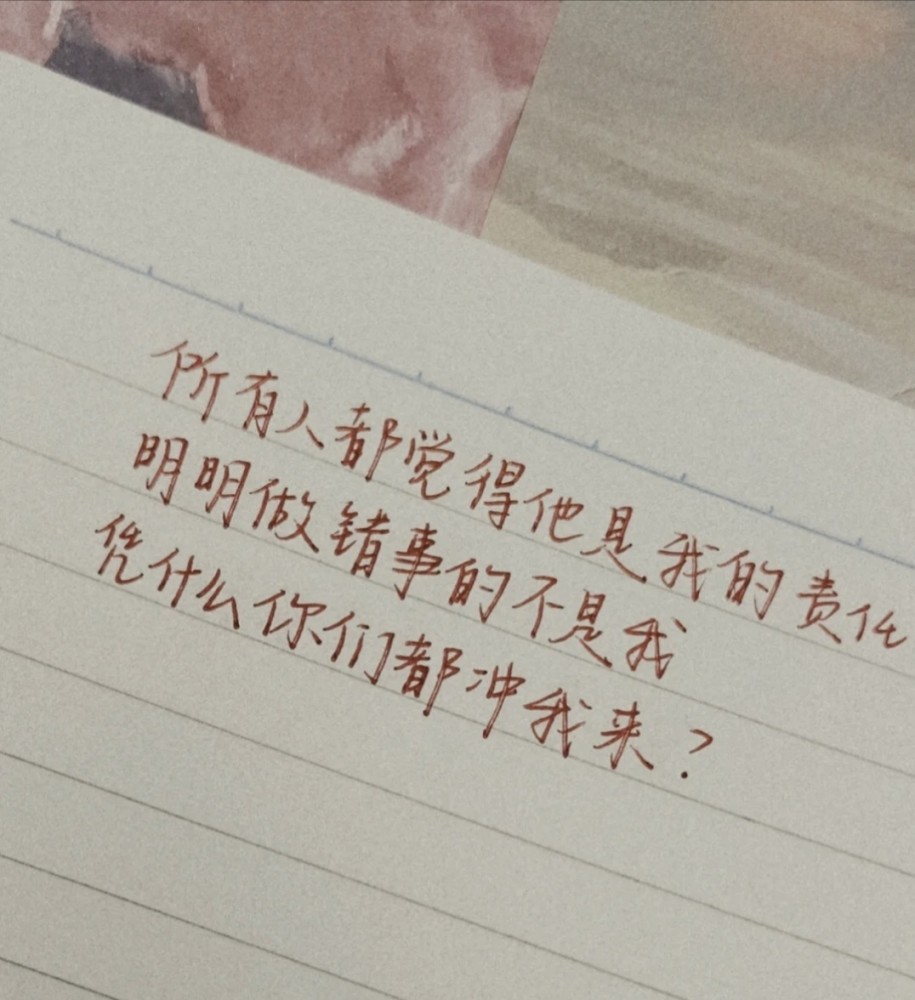 所有人都觉得他是我的责任
明明做错事的不是我
凭什么你们都冲我来？